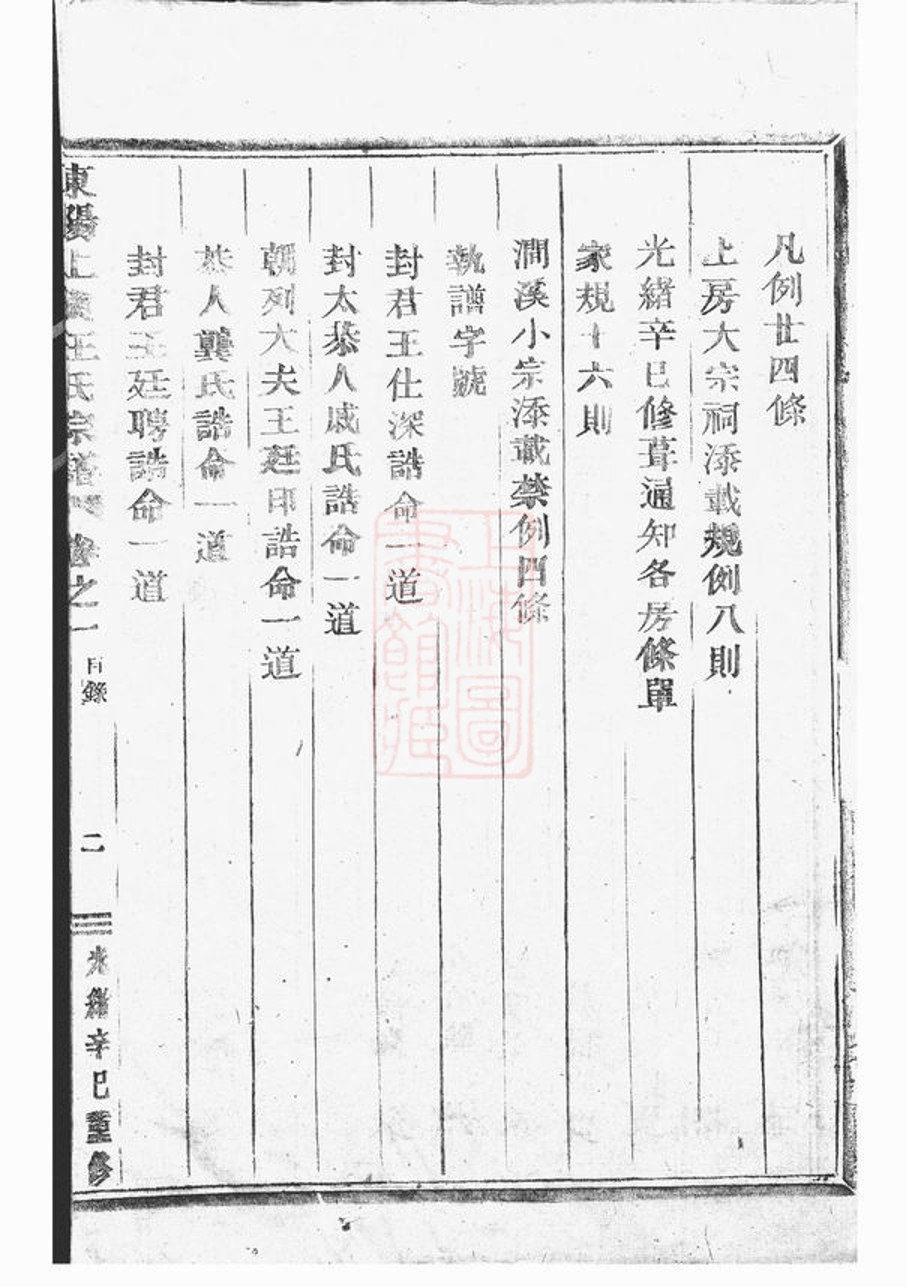 凡例廿四條
上房大宗祠添載規例八則
光緒辛巳修葺通知各房條單
家規十六則
澗溪小宗添載禁例四條
執譜字號
封君王仕深誥命一道
封太恭人戚氏誥命一道
朝列大夫王廷印誥命一道
恭人龔氏誥命一道
封君王廷聘誥命一道
東陽上王氏宗譜卷之一 目錄 二 光緒辛巳重修
上海圖書館藏